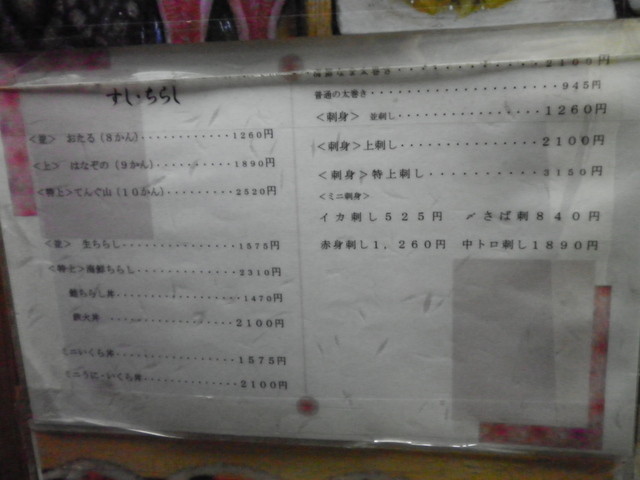 すし・ちらし
<並> おたる(8かん)‥‥‥‥‥1260円
<上> はなぞの(9かん)‥‥‥‥‥1890円
<特上>てんぐ山(10かん)‥‥‥‥‥2520円
<並> 生ちらし‥‥‥‥‥1575円
<特上>海鮮ちらし‥‥‥‥‥2310円
ちらし丼‥‥‥‥‥1470円
鉄火丼‥‥‥‥‥2100円
ミニいくら丼‥‥‥‥‥1575円
ミニうに・いくら丼‥‥‥‥‥2100円
なま太巻き‥‥‥‥‥2100円
普通の太巻き‥‥‥‥‥945円
<刺身> 並刺し‥‥‥‥‥1260円
<刺身>上刺し‥‥‥‥‥2100円
<刺身>特上刺し‥‥‥‥‥3150円
<ミニ刺身>
イカ刺し525円 〆さば刺840円
赤身刺し1,260円 中トロ刺し1890円